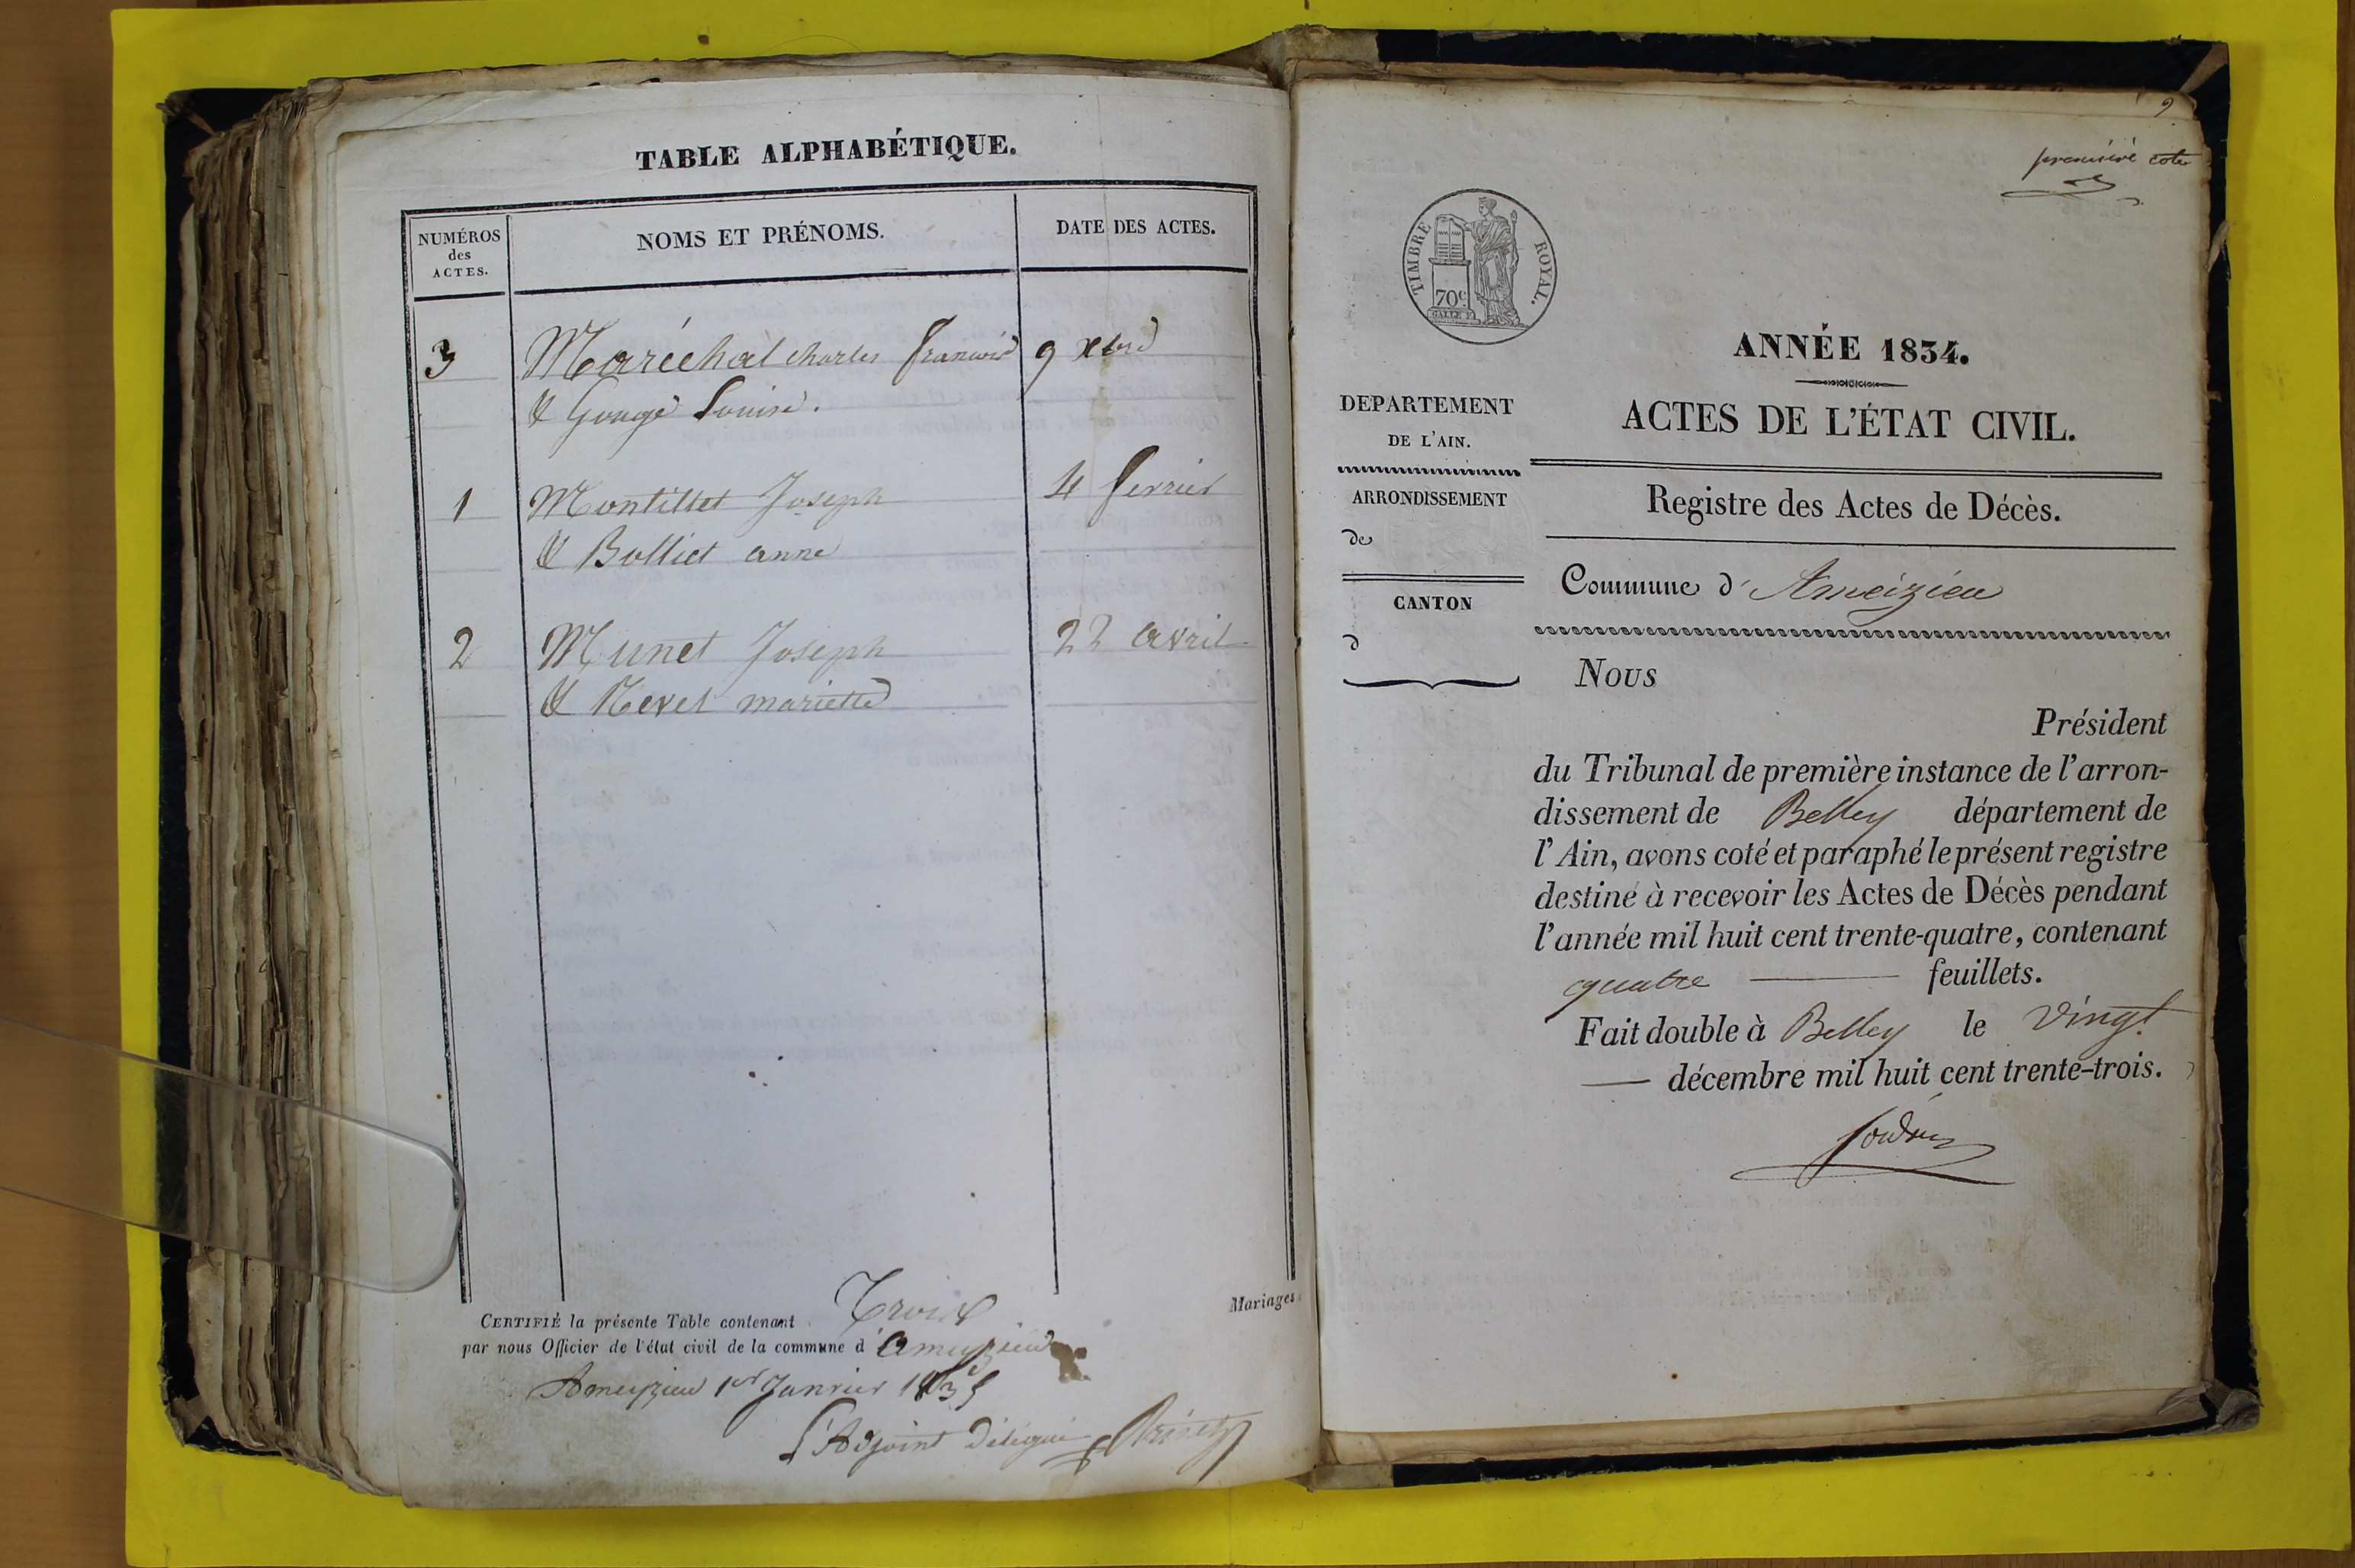 TABLE ALPHABÉTIQUE.
NUMÉROS
des
ACTES.
NOMS ET PRÉNOMS.
DATE DES ACTES.
3 Maréchal charles francois 9 xbre
& Gouge Louise.
1 Montillet Joseph 4 fevrier
& Bolliet anne
2 Munet Joseph 22 avril
& mariette
CERTIFIÉ la présente Table contenant Trois Mariages
par nous Officier de l'état civil de la commune d'ameyzieu
Ameyzieu 1er Janvier 1835
L'Adjoint Délégué
9
premiere cote
TIMBRE ROYAL.
70c
ANNÉE 1834.
ACTES DE L'ÉTAT CIVIL.
DEPARTEMENT
DE L'AIN.
ARRONDISSEMENT
de
CANTON
d
Registre des Actes de Décès.
Commune d'Ameizieu
Nous
Président
du Tribunal de première instance de l'arron-
dissement de Belley département de
l'Ain, avons coté et paraphé le présent registre
destiné à recevoir les Actes de Décès pendant
l'année mil huit cent trente-quatre, contenant
quatre feuillets.
Fait double à Belley le vingt
décembre mil huit cent trente-trois.